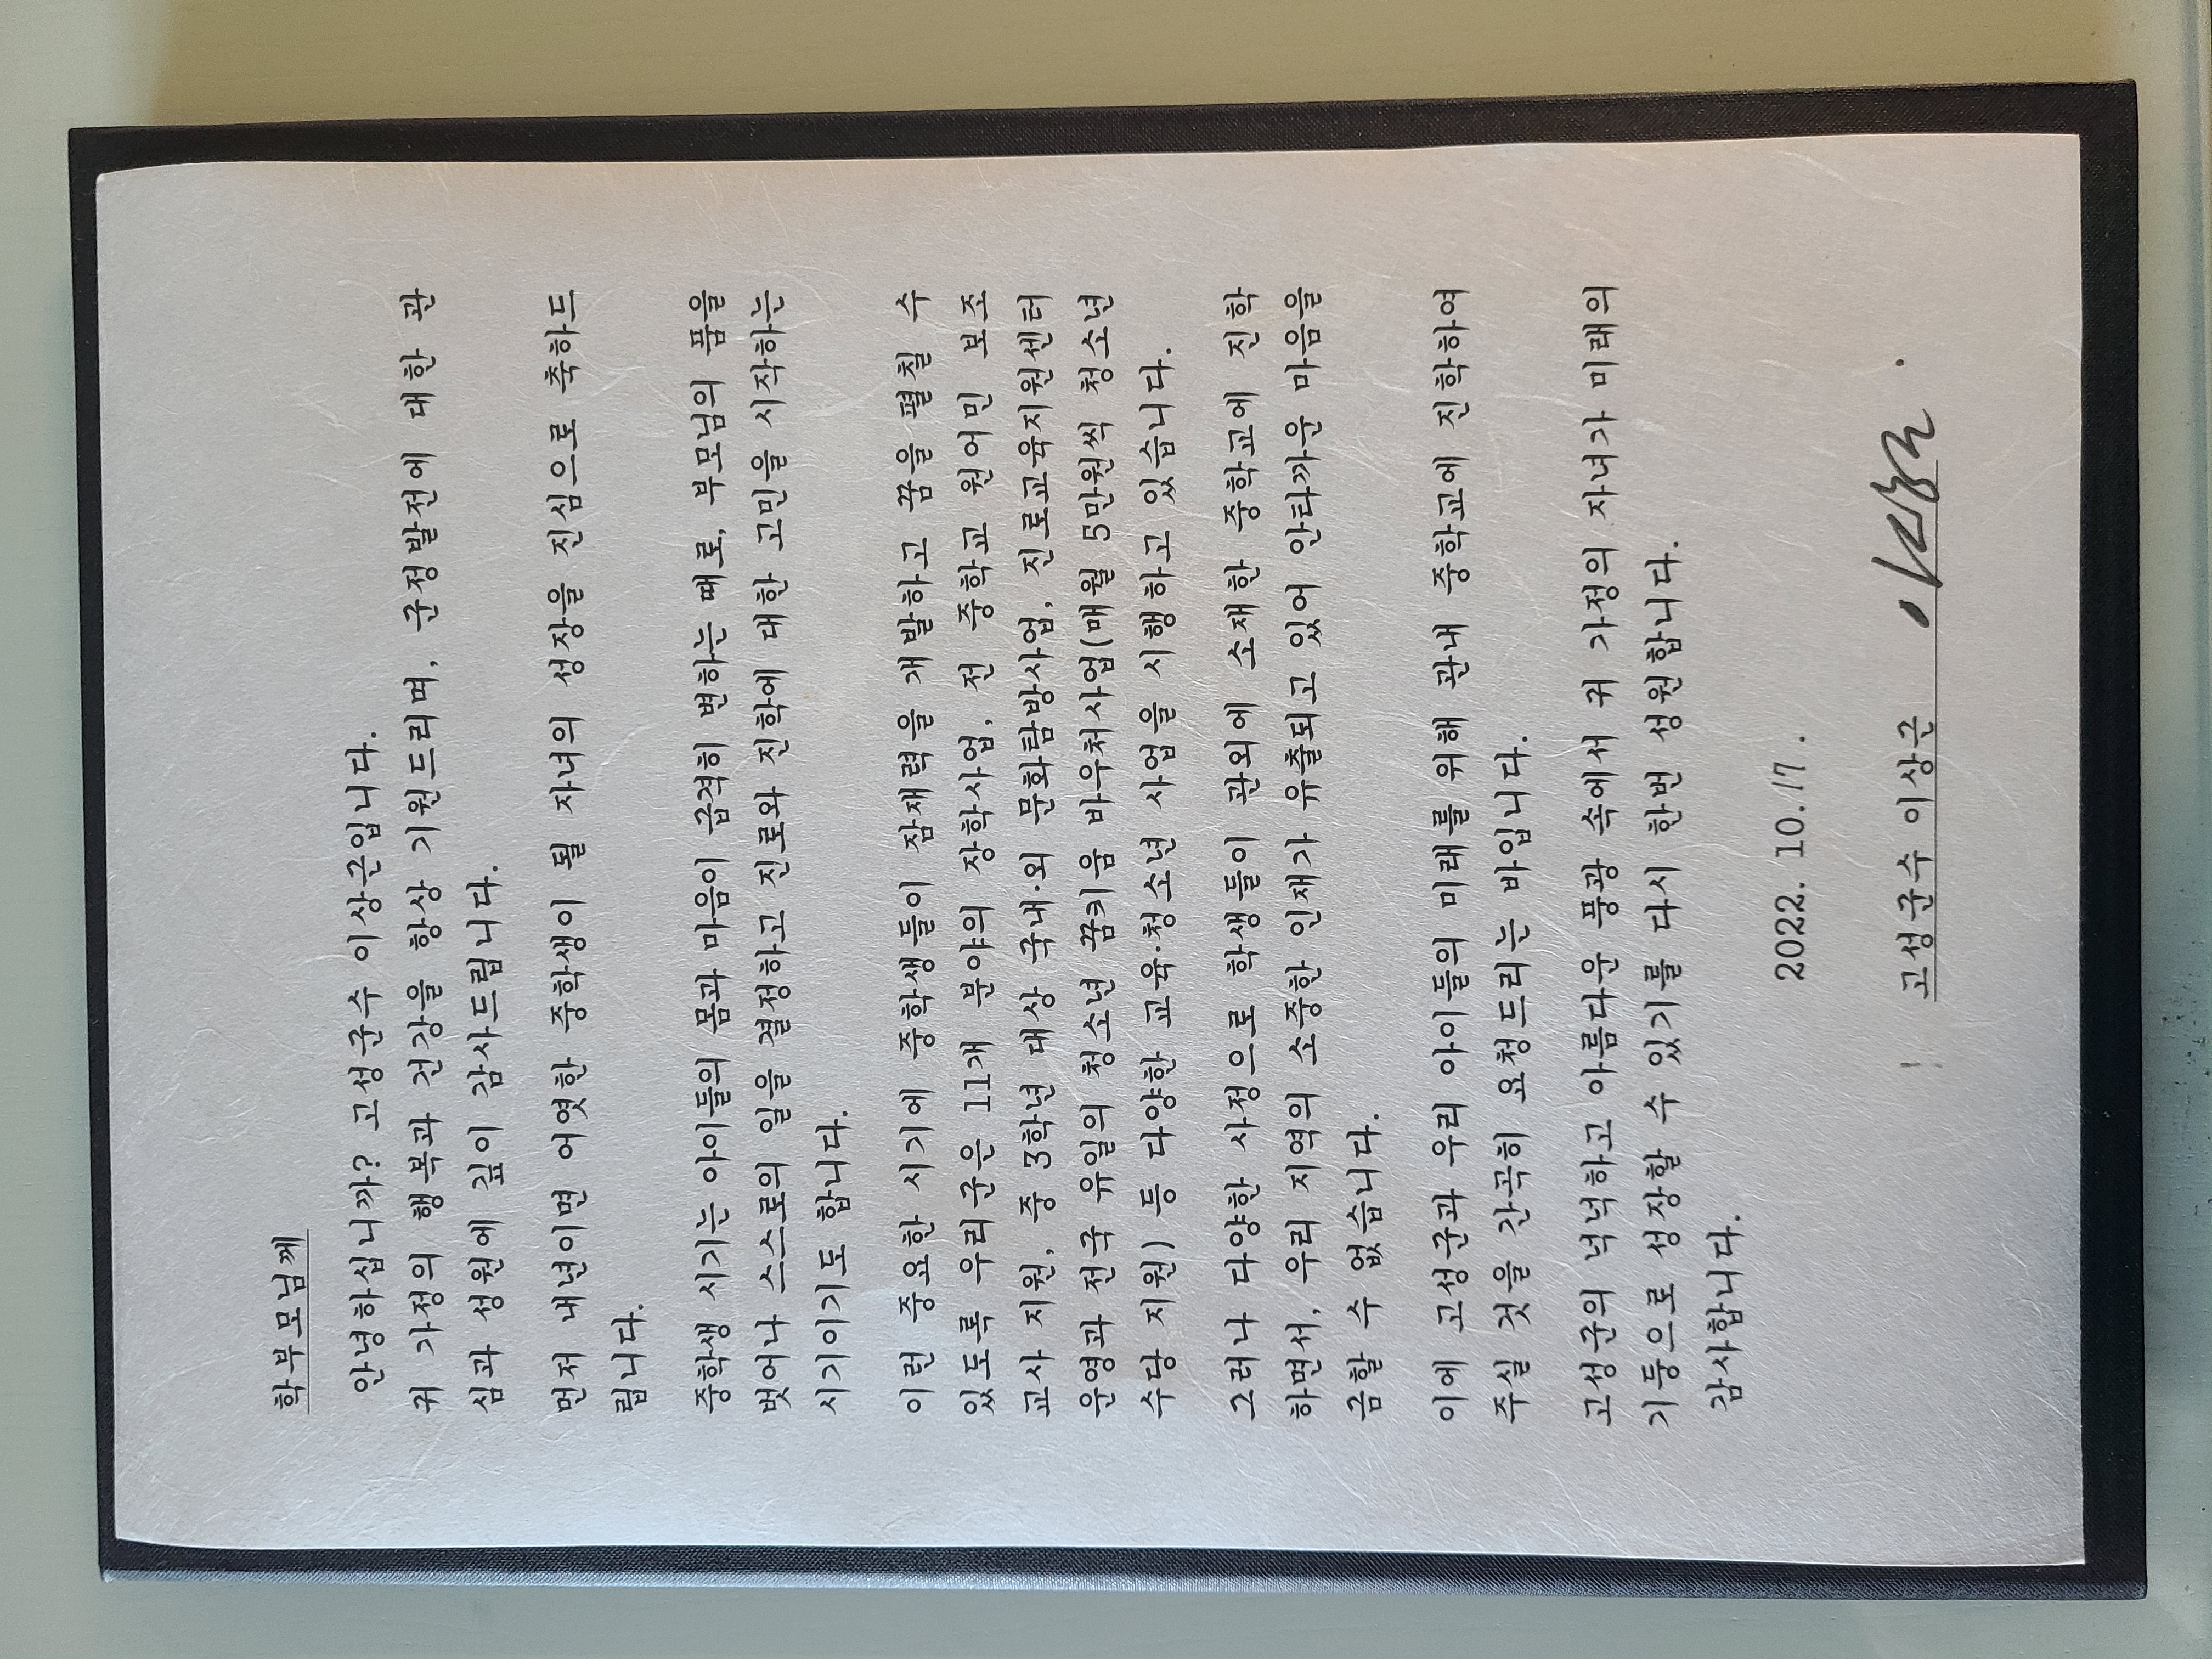 학부모님께
안녕하십니까? 고성군수 이상근입니다.
귀 가정의 행복과 건강을 항상 기원드리며, 군정발전에 대한 관
심과 성원에 깊이 감사드립니다.
먼저 내년이면 어엿한 중학생이 될 자녀의 성장을 진심으로 축하드
립니다.
중학생 시기는 아이들의 몸과 마음이 급격히 변하는 때로, 부모님의 품을
벗어나 스스로의 일을 결정하고 진로와 진학에 대한 고민을 시작하는
시기이기도 합니다.
이런 중요한 시기에 중학생들이 잠재력을 개발하고 꿈을 펼칠 수
있도록 우리군은 11개 분야의 장학사업, 전 중학교 원어민 보조
교사 지원, 중 3학년 대상 국내·외 문화탐방사업, 진로교육지원센터
운영과 전국 유일의 청소년 꿈키움 바우처사업(매월 5만원씩 청소년
수당 지원) 등 다양한 교육·청소년 사업을 시행하고 있습니다.
그러나 다양한 사정으로 학생들이 관외에 소재한 중학교에 진학
하면서, 우리 지역의 소중한 인재가 유출되고 있어 안타까운 마음을
금할 수 없습니다.
이에 고성군과 우리 아이들의 미래를 위해 관내 중학교에 진학하여
주실 것을 간곡히 요청드리는 바입니다.
고성군의 넉넉하고 아름다운 풍광 속에서 귀 가정의 자녀가 미래의
기둥으로 성장할 수 있기를 다시 한번 성원합니다.
감사합니다.
2022. 10. 17.
고성군수 이상근